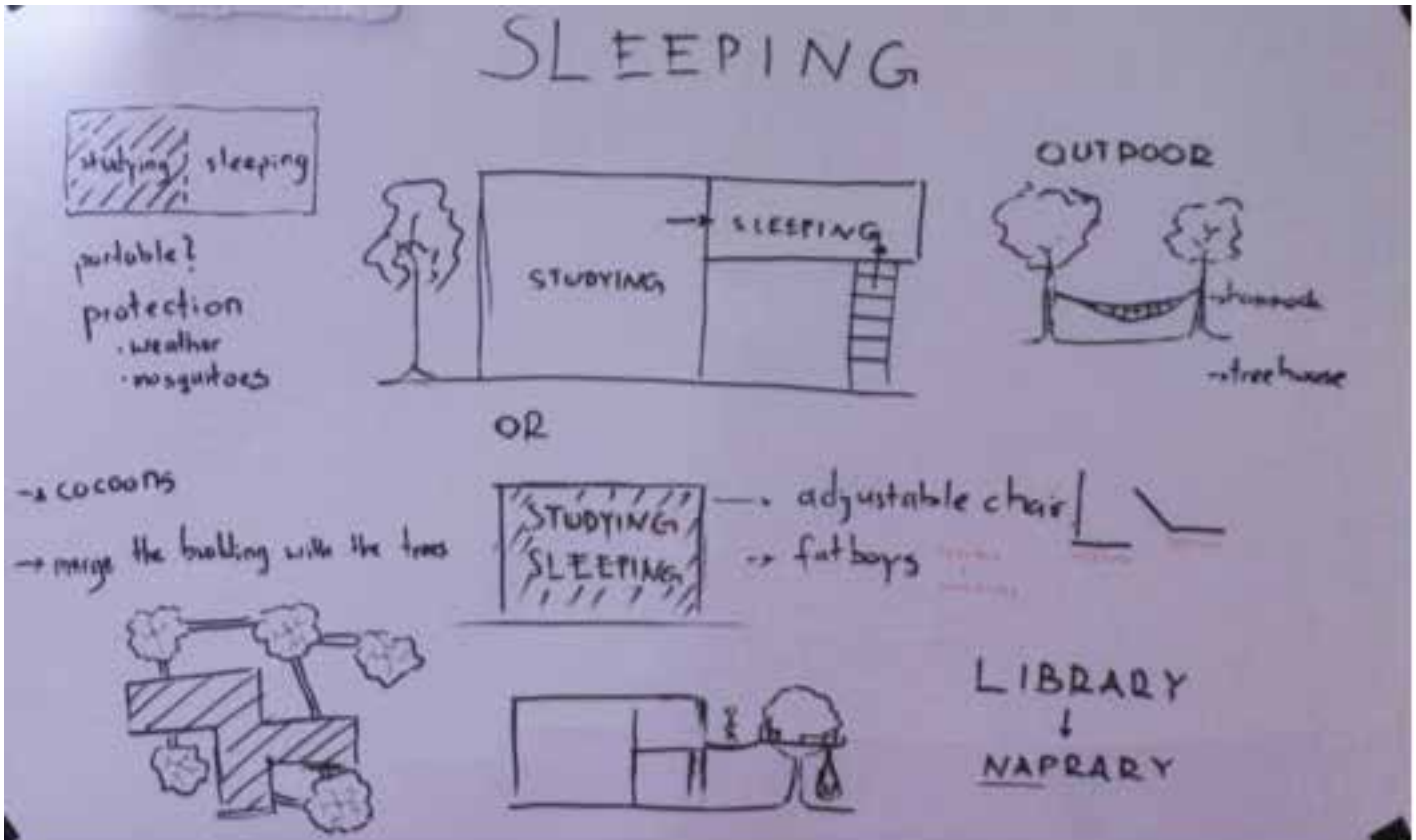 SLEEPING
studying sleeping
portable?
protection
. weather
. mosquitoes
STUDYING
→ SLEEPING
OUTDOOR
→ hammock
→ treehouse
OR
→ cocoons
→ merge the building with the trees
STUDYING
SLEEPING
→ adjustable chair
→ fatboys
LIBRARY
↓
NAPRARY